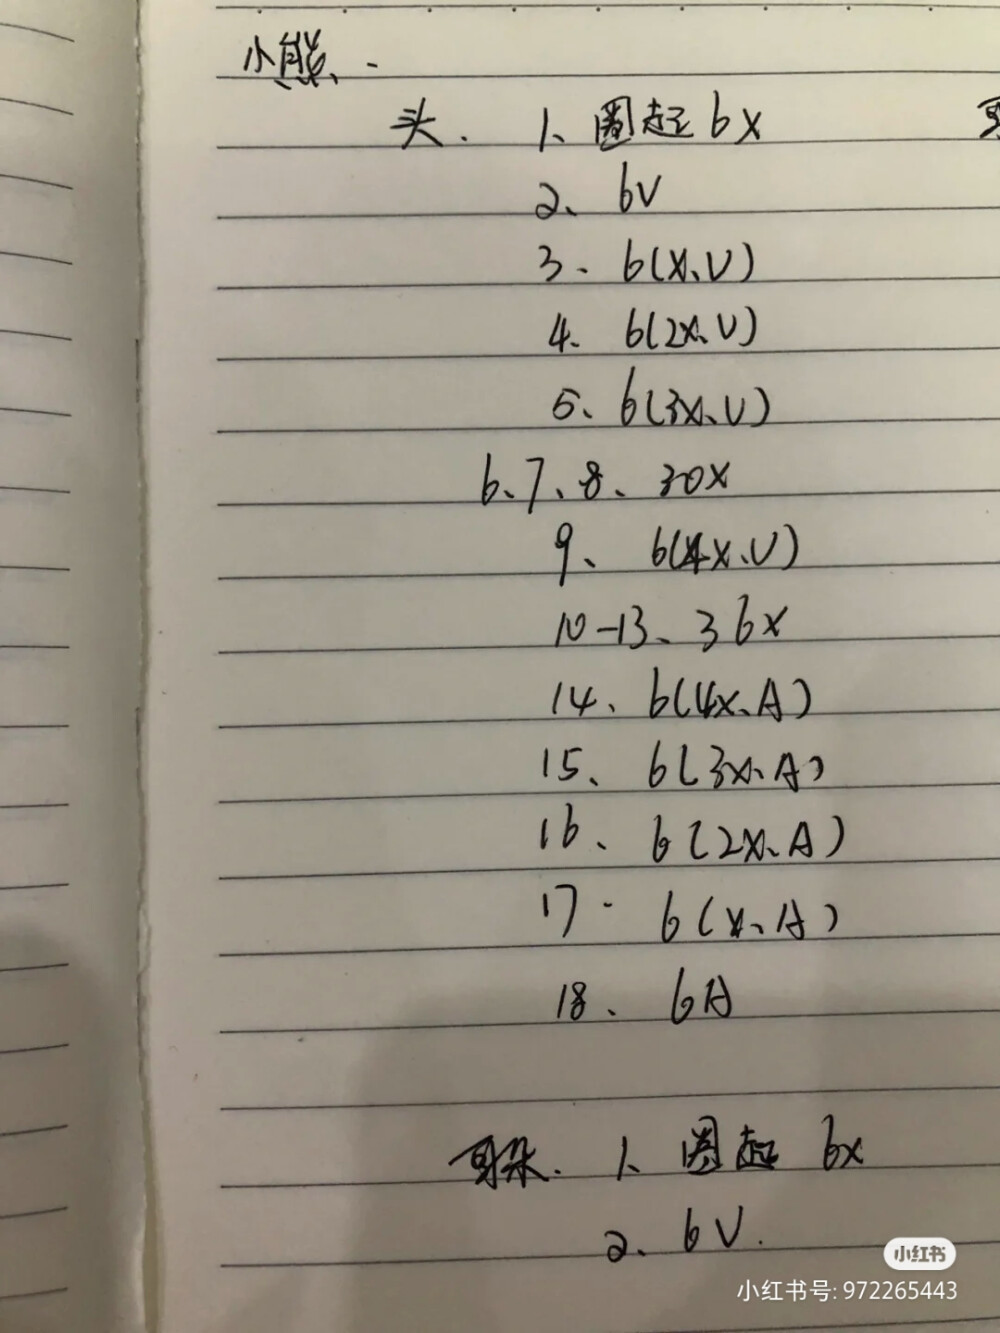 小熊、-
头. 1、圈起 6x
2、6V
3、6(x、V)
4、6(2x、V)
5、6(3x、V)
6、7、8、30x
9、6(4x、V)
10-13、36x
14、6(4x、A)
15、6(3x、A)
16、6(2x、A)
17. 6(x、A)
18、6A
耳朵. 1、圈起 6x
2、6V.
小红书
小红书号: 972265443